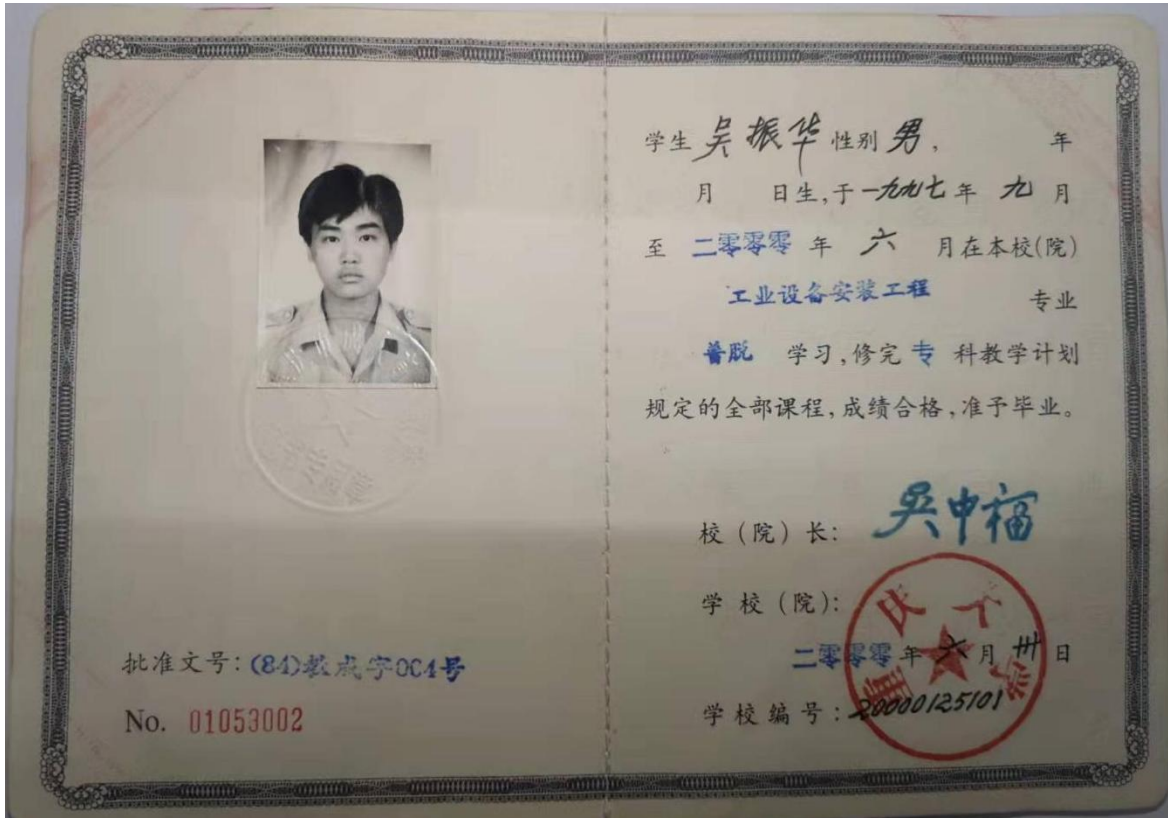 批准文号：(84)教成字004号
No. 01053002
学生吴振华性别男，　　年
月　日生，于一九九七年 九 月
至 二零零零 年 六 月在本校(院)
工业设备安装工程 专业
普脱 学习，修完 专 科教学计划
规定的全部课程，成绩合格，准予毕业。
校（院）长：吴中福
学校（院）：
重庆大学
二零零零年六月卅日
学校编号：20000125101